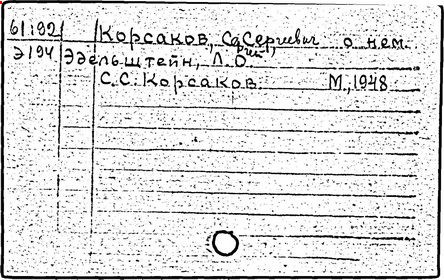 61:92 Корсаков, Сергей Сергеевич о нем.
Э194 Эдельштейн, Л.О.
С.С. Корсаков. М., 1948